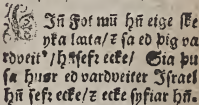 Þin̄ Fot mun̄ hn̄ eige ske
yka læta/ ꝛ sa ed þig va
rdveit'/ hn̄sefz ecke/ Sia þu
sa huer ed vardveiter Israel
hn̄ sefz ecke/ ꝛ ecke syfiar hn̄.